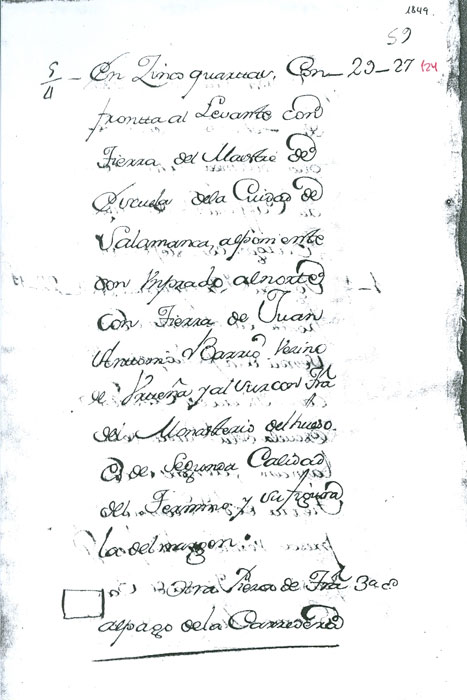 1849.
59
5/4 - En Zinco quartas, Con- 29-27 124
frontta al Levante con
Tierra del Maestre de
Escuela de la Ciudad de
Salamanca, alponiente
con un prado, alnorte
con Tierra de Juan
Antonio Barrio Vezino
de Urueña y al Sur con Tra
del Monasterio del hueso.
Es de Segunda Calidad
del Termino y su figura
la del margen.
Otra Pieza de Tra 3a c
alpago de la Carrera